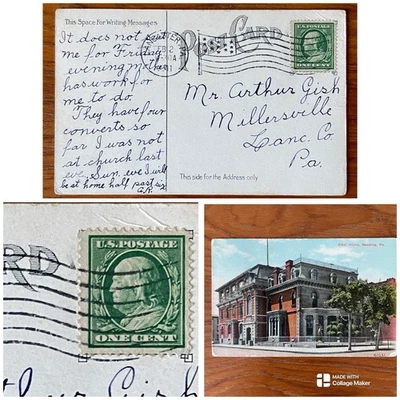 This Space For Writing Messages
It does not suit
me for Friday
evening mother
has work for
me to do.
They have four
converts so
far I was not
at church last
eve. Sun. eve I will
be at home half past six
A.R.
POST CARD
FEB 2
1911
U.S. POSTAGE
ONE CENT
Mr. Arthur Gish
Millersville
Lanc. Co.
Pa.
This side for the Address only
RD
U.S. POSTAGE
ONE CENT
thur Gish
Reading, Pa.
MADE WITH
Collage Maker